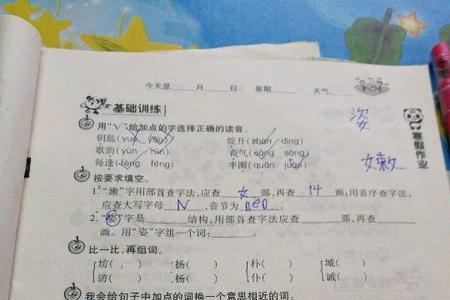 今天是 月 日 星期 天气
基础训练
姿
寒假作业
用“√”给加点的字选择正确的读音。
钥匙(yuè yào) 绽开(zhàn dìng)
歌韵(yùn yūn) 丧气(sāng sàng)
每逢(féng fēng) 半圈(quān juàn)
女敕
按要求填空。
1.“嫩”字用部首查字法,应查 女 部,再查 14 画;用音序查字法,
应查大写字母 N ,音节为 nen 。
2.“姿”字是 结构,用部首查字法应查 部,再查
画。用“姿”字组一个词: 。
比一比,再组词。
坊( ) 杨( ) 朴( ) 城( )
访( ) 扬( ) 仆( ) 诚( )
我会给句子中加点的词换一个意思相近的词。